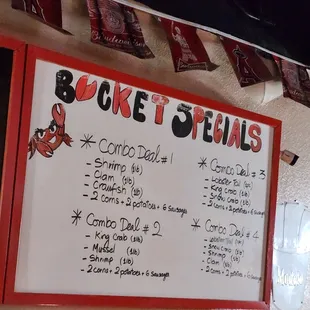 BUCKET SPECIALS
* Combo Deal #1
- Shrimp (1lb)
- Clam (1lb)
- Crawfish (1lb)
- 2 corns + 2 potatoes + 6 Sausages
* Combo Deal # 2
- King Crab (1lb)
- Mussel (1lb)
- Shrimp (1lb)
- 2 corns + 2 potatoes + 6 Sausages
* Combo Deal # 3
- Lobster Tail
- King Crab (1lb)
- Snow Crab (1lb)
- 2 corns + 2 potatoes + 6 Sausages
* Combo Deal # 4
- Lobster Tail
- Snow Crab (1lb)
- Shrimp (1lb)
- Clam (1lb)
- 2 corns + 2 potatoes + 6 Sausages